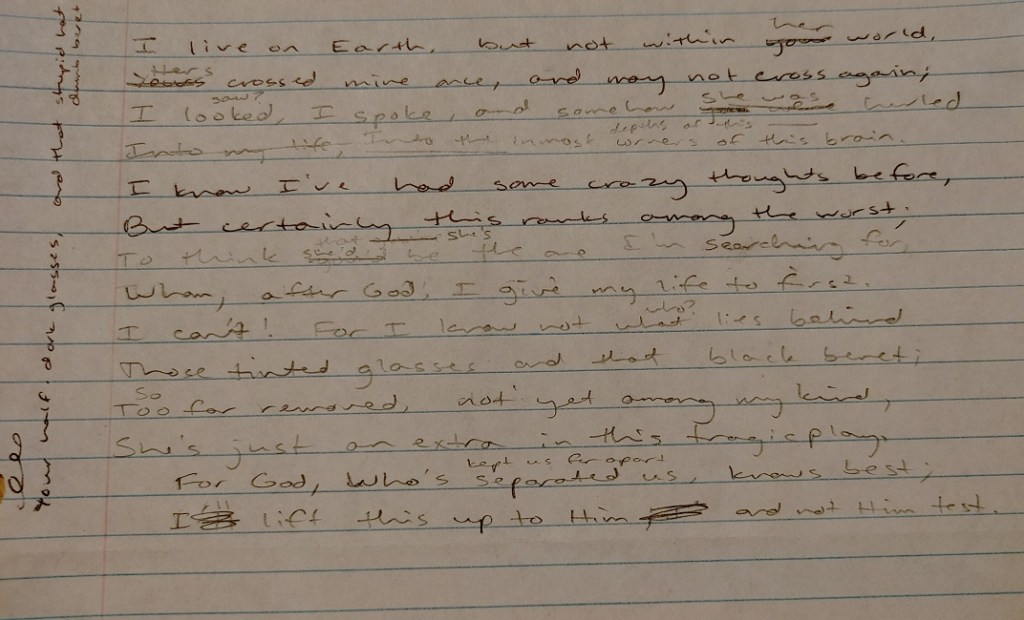 I live on Earth, but not within her your world,
Hers Yours crossed mine once, and may not cross again;
saw?
I looked, I spoke, and somehow she was hurled
depths of this
Into my life, Into the inmost corners of this brain.
I know I've had some crazy thoughts before,
But certainly this ranks among the worst;
that she's
To think she'd be the one I'm searching for,
Whom, after God, I give my life to first.
who?
I can't! For I know not what lies behind
Those tinted glasses and that black beret;
So
Too far removed, not yet among my kind,
She's just an extra in this tragic play.
kept us far apart
For God, Who's separated us, knows best;
I lift this up to Him and not Him test.
Your half. dark glasses, and that stupid hat
dumb beret